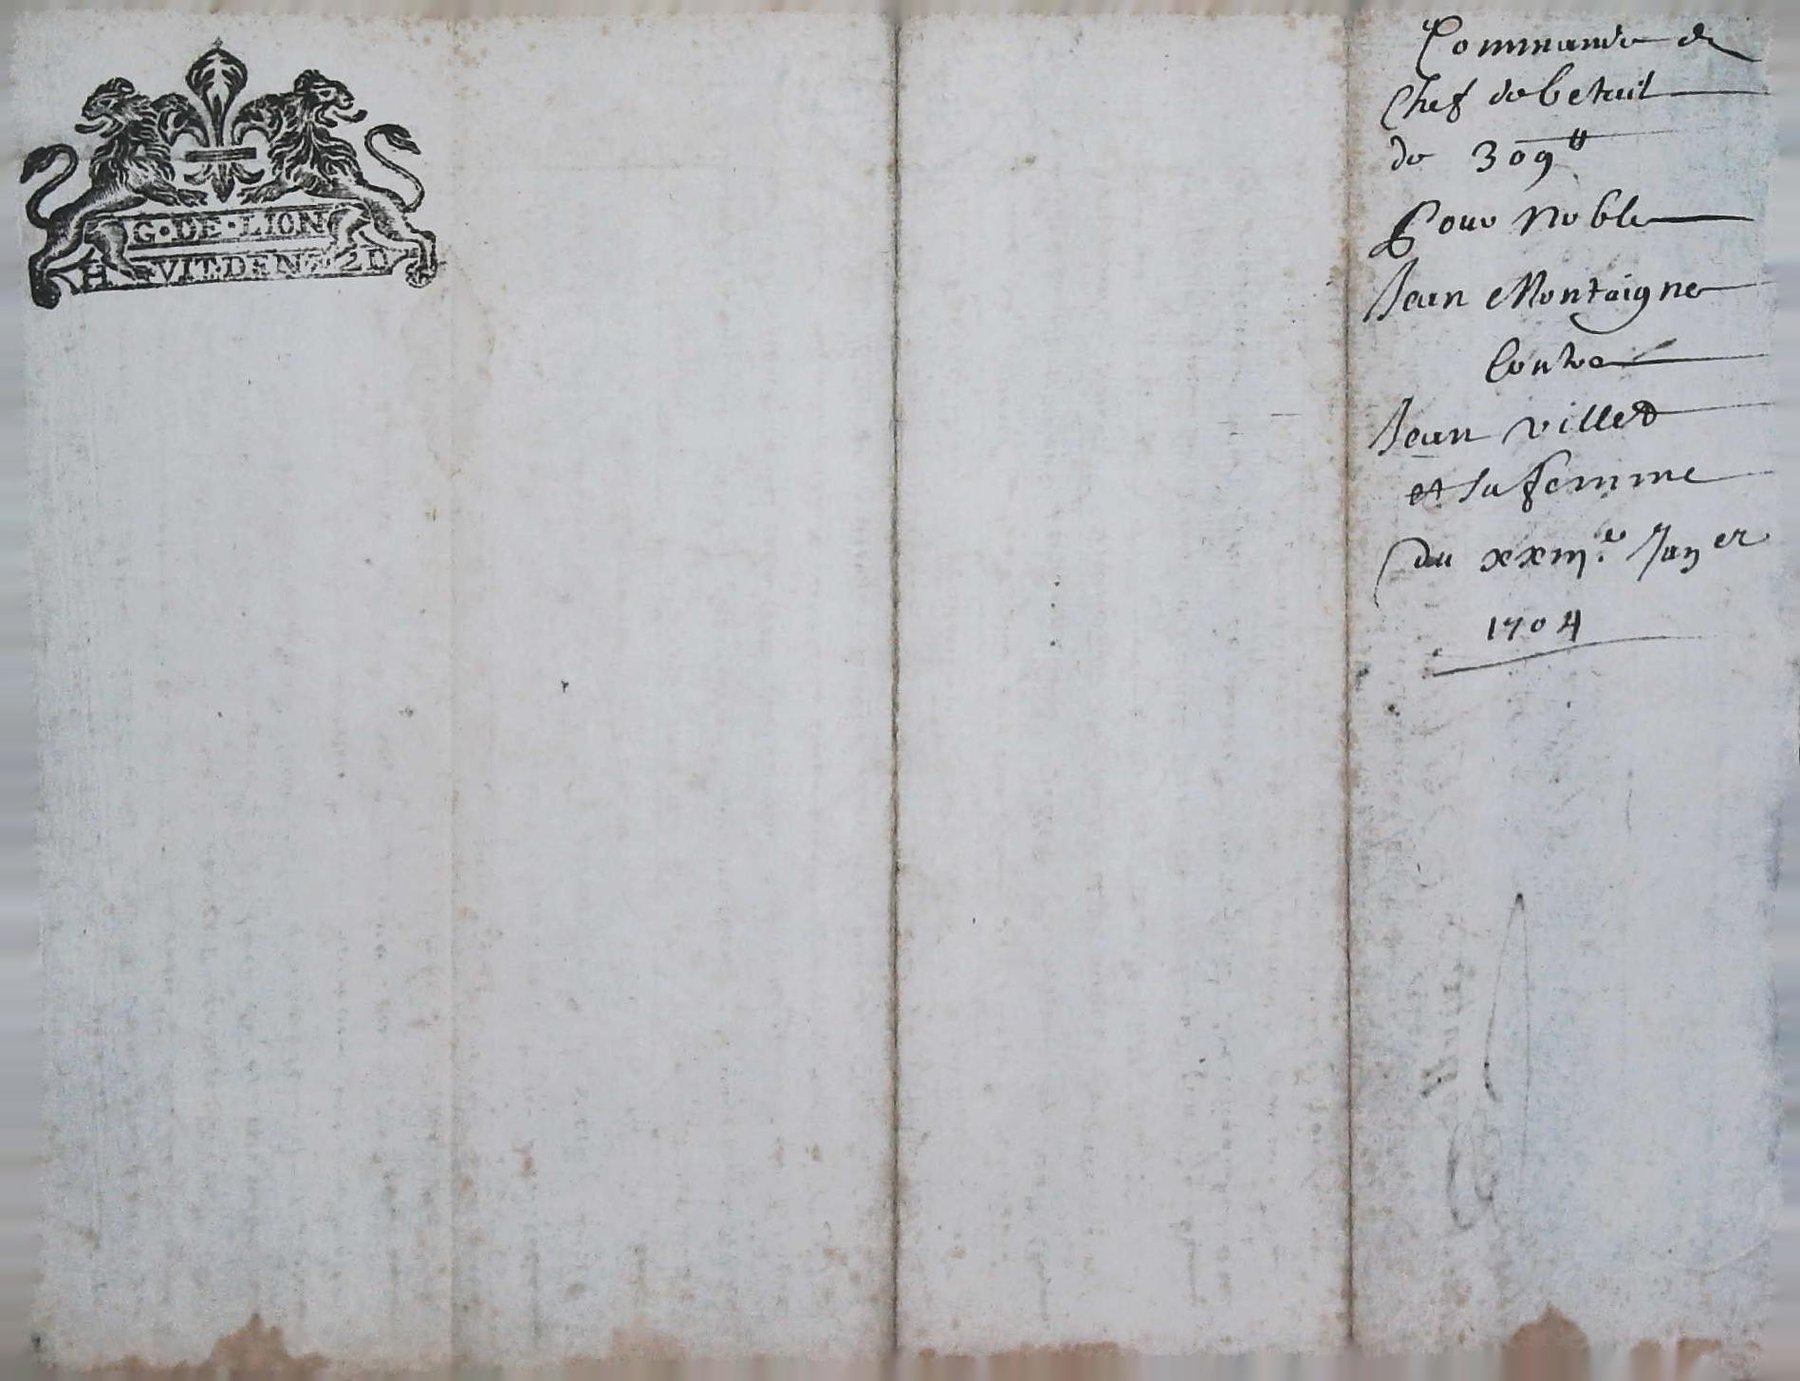 G·DE·LION
HVIT.DEN 2D
Commande de
Chef de betail
de 309tt
Pour Noble
Jean Montaigne
Contre
Jean villet
et sa femme
du xxiije Janer
1704